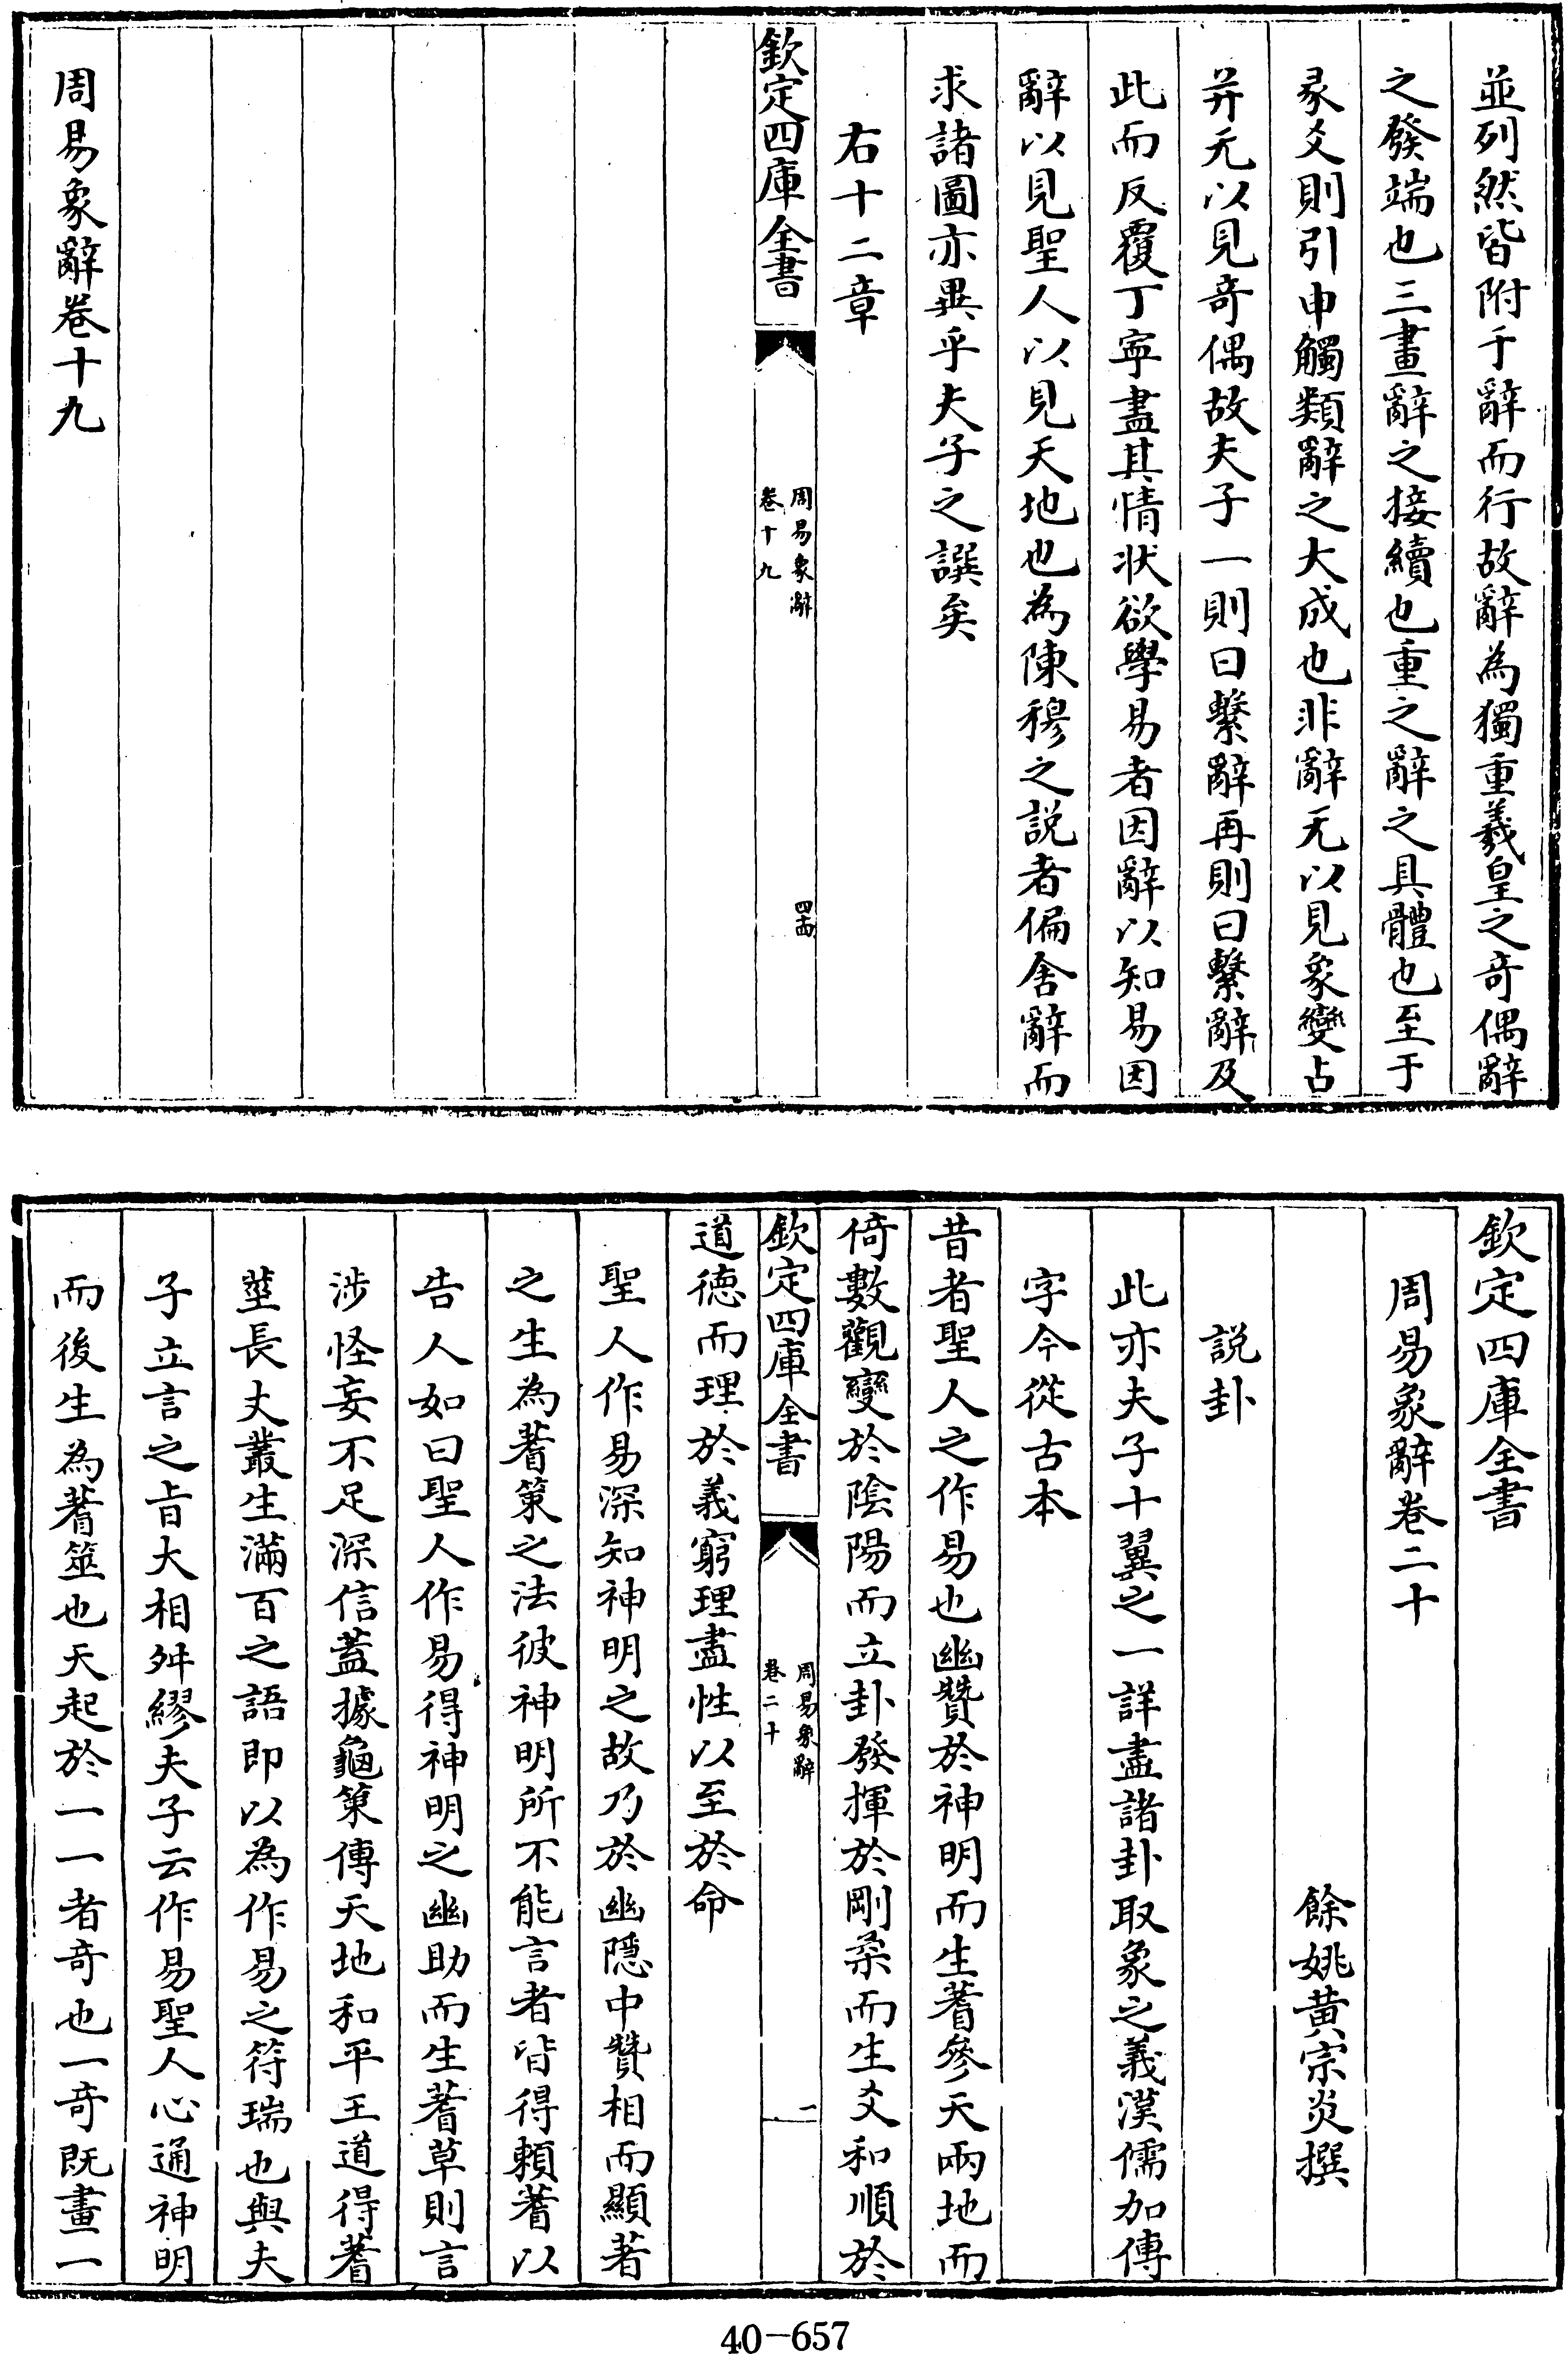 並列然皆附于辭而行故辭為獨重羲皇之奇偶辭
之發端也三畫辭之接續也重之辭之具體也至于
彖爻則引申觸類辭之大成也非辭无以見象變占
并无以見奇偶故夫子一則曰繫辭再則曰繫辭及
此而反覆丁寧盡其情狀欲學易者因辭以知易因
辭以見聖人以見天地也為陳穆之説者偏舍辭而
求諸圖亦異乎夫子之譔矣
右十二章
欽定四庫全書
周易象辭
卷十九
四十四
周易象辭卷十九
欽定四庫全書
周易象辭卷二十
餘姚黄宗炎撰
説卦
此亦夫子十翼之一詳盡諸卦取象之義漢儒加傳
字今從古本
昔者聖人之作易也幽贊於神明而生蓍參天兩地而
倚數觀變於陰陽而立卦發揮於剛柔而生爻和順於
欽定四庫全書
周易象辭
卷二十
一
道德而理於義窮理盡性以至於命
聖人作易深知神明之故乃於幽隱中贊相而顯著
之生為蓍策之法彼神明所不能言者皆得賴蓍以
告人如曰聖人作易得神明之幽助而生蓍草則言
涉怪妄不足深信蓋據龜策傳天地和平王道得蓍
莖長丈叢生滿百之語即以為作易之符瑞也與夫
子立言之旨大相舛繆夫子云作易聖人心通神明
而後生為蓍筮也天起於一一者奇也一奇既畫一
40-657